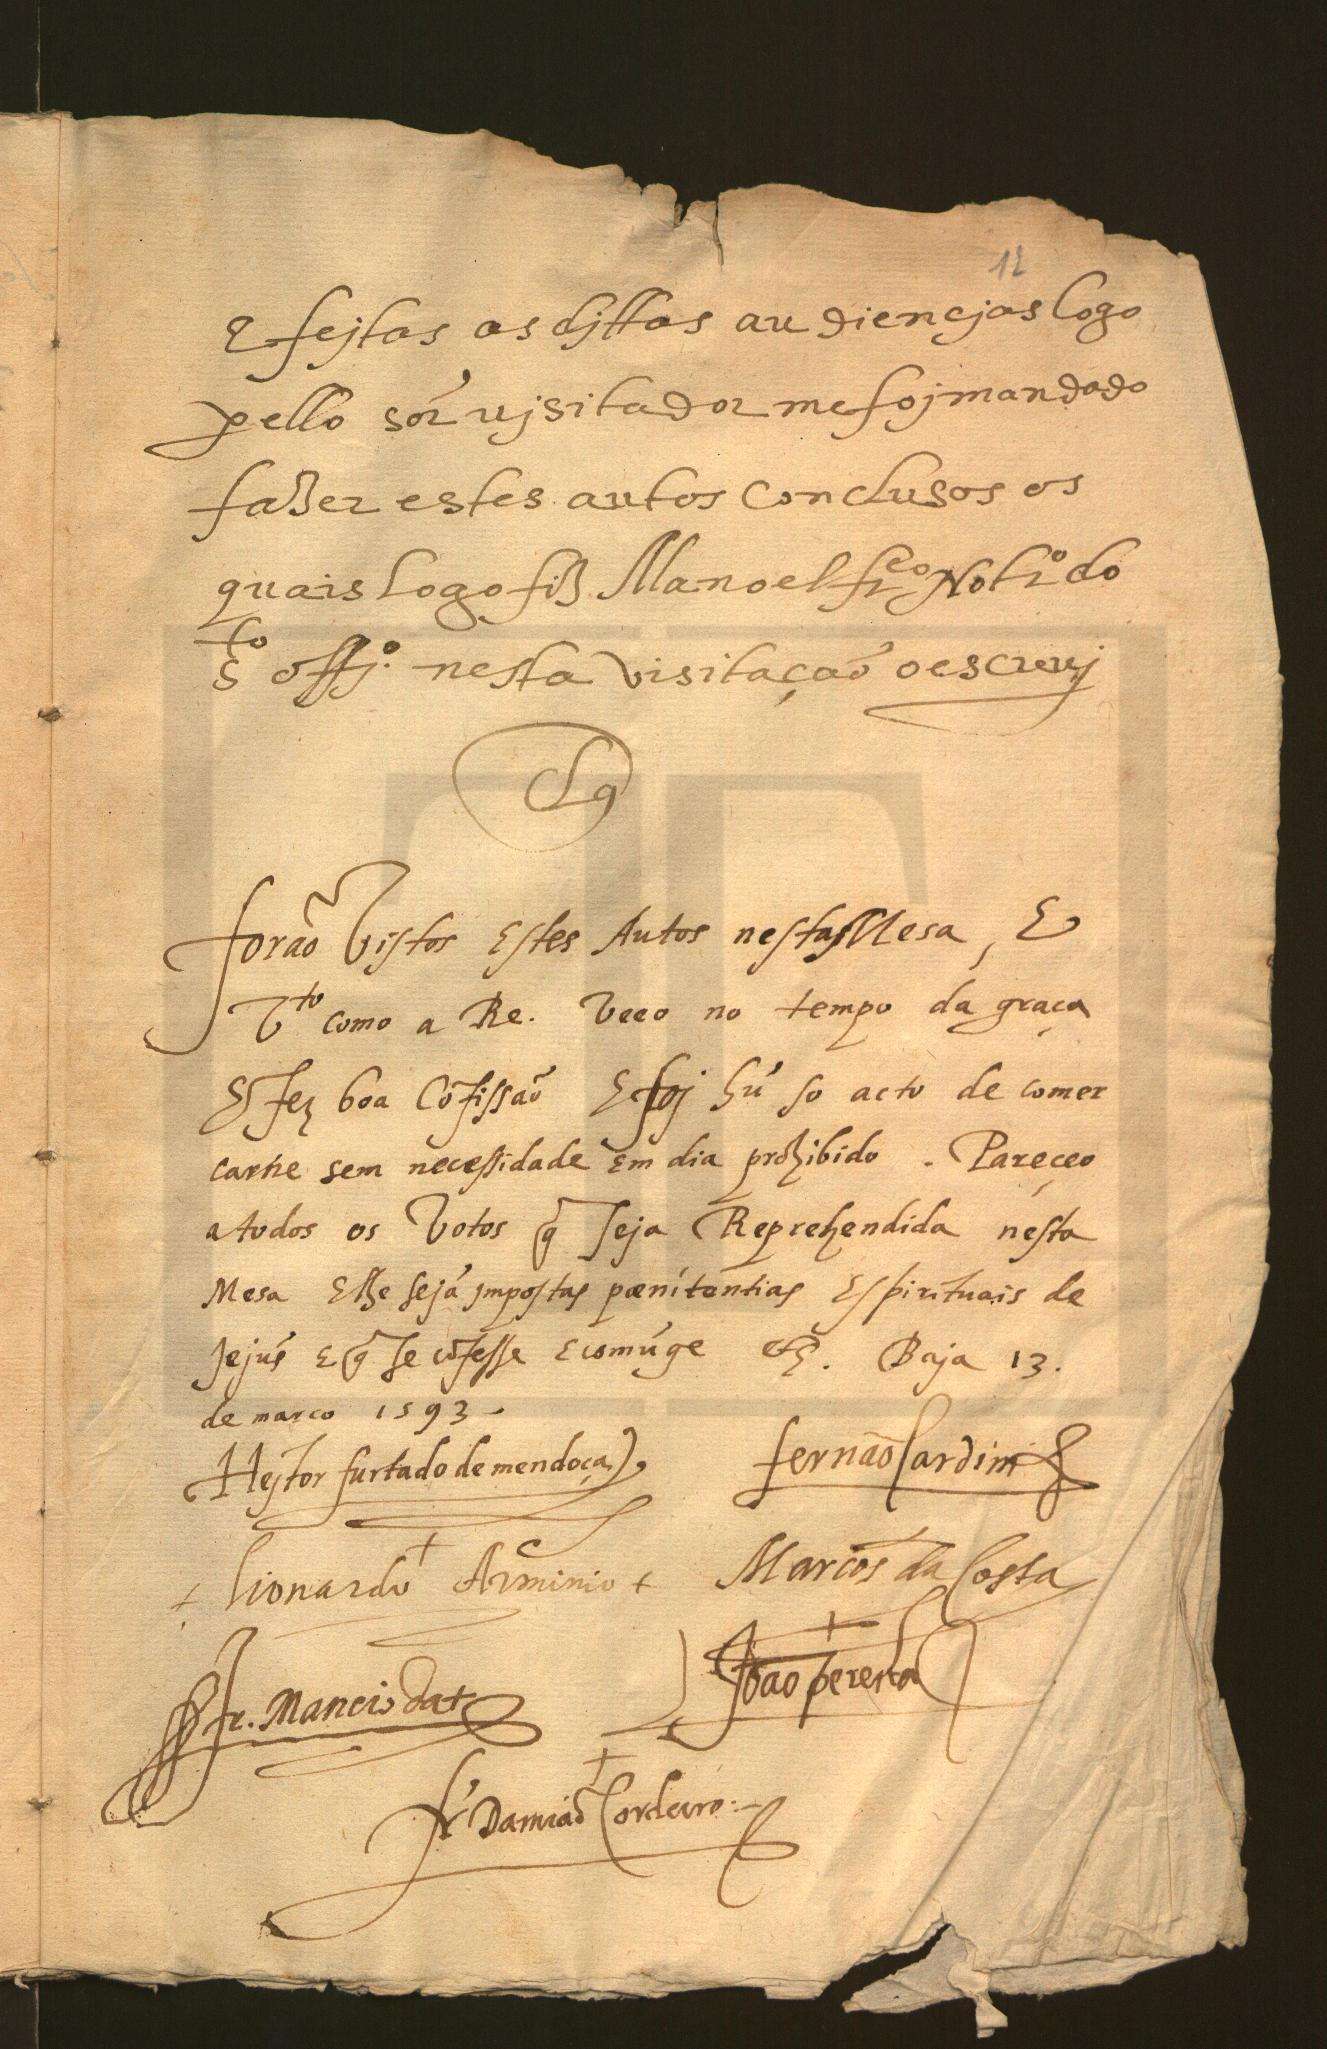 12
E fejtas as djttas audiencjas logo
pello sõr vjsitador me foj mandado
fazer estes autos conclusos os
quais logo fiz Manoel frco Notro do
sto offjo. nesta visitação o escrevj
Forão Vistos Estes Autos nesta Mesa, E
Vto como a Re. Veeo no tempo da graça
E fez boa Cõfissão E foj hũ so acto de comer
carne sem necessidade Em dia prohibido. Pareçeo
a todos os Votos q̃ seja Reprehendida nesta
Mesa E lhe sejã jmpostas pænitentias Espirituais de
Jejũs E q̃ se cõfesse E comũge etc. Baja 13.
de março 1593
Hejtor furtado de mendoça
fernão Cardim
Lionardo Arminio
Marcos da Costa
fr. Mancio da +
João pereira
fr Damião Cordeiro